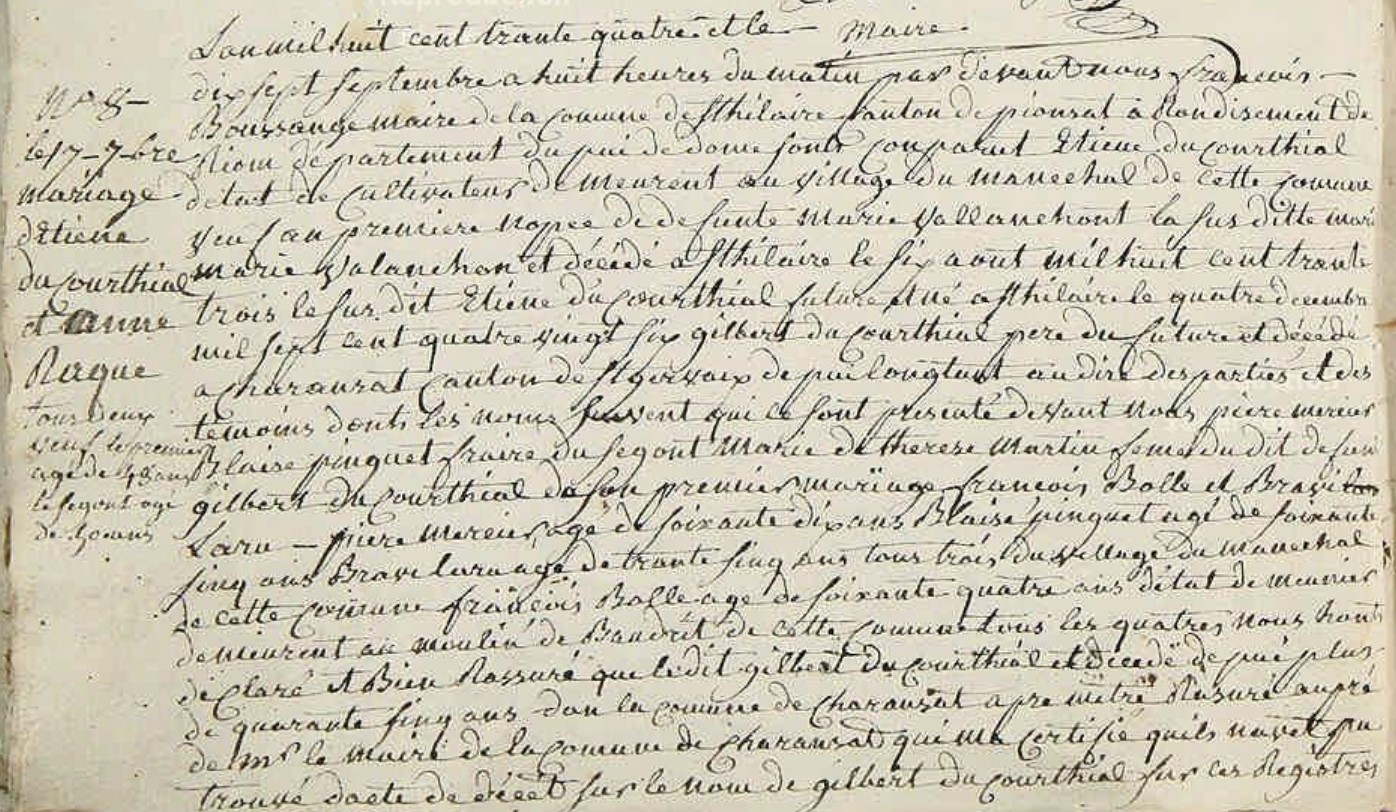 Maire.
L'an mil huit cent trante quatre et le
dix sept septembre a huit heures du matin par devant nous francois
Boussange maire de la comune de sthilaire canton de pionsat a Rondisement de
Riom departement du pui de dome sont conparut Etiene ducourthial
detat de cultivateur demeurent au village du manechal de cette comune
veuf an premiere nopce de defunte Marie Vallanchont la sus ditte mari
marie valanchon et décédé a sthilaire le six aout mil huit cent trante
trois le sus dit Etiene du courthial future et né a sthilaire le quatre decembre
mil sept cent quatre vingt six gilbert du courthial pere du future et décédé
a charansat canton de st gervaix de pui longtant au dire des parties et des
témoins donts les noms suivent qui ce sont presenté devant nous piere mercier
Blaise pinquet fraire du segont Marie de therese Martin feme du dit defun
gilbert du courthial de son premier mariage francois Bolle et Bravi
Laru – piere mercier age de soixante dix ans Blaise pinquet agé de soixante
sinq ans Bravi laru age de trante sinq ans tous trois du village du manechal
de cette comune francois Bolle age de soixante quatre ans détat de meunier
demeurent au moulin de Baudrit de cette comune tous les quatres nous honts
déclaré et Bien Rassuré que ledit gilbert du courthial et décedé de pui plus
de quarante sinq ans dan la comune de charansat apre mitre Rasuré aupré
de mr le maire de la comune de charansat qui ma certifié quils navet pu
trouvé dacte de décét sur le nom de gilbert du courthial sur ces Registres
No 8
le 17 7bre
mariage
d'Etiene
du courthial
et anne
Raque
tous deux
veuf le premier
agé de 48 ans
le segont agé
de 50 ans